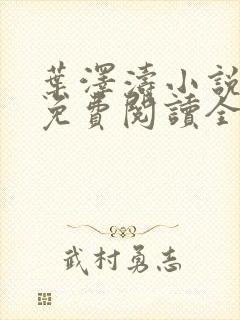 葉澤濤小說
免費閱讀全
武村勇志